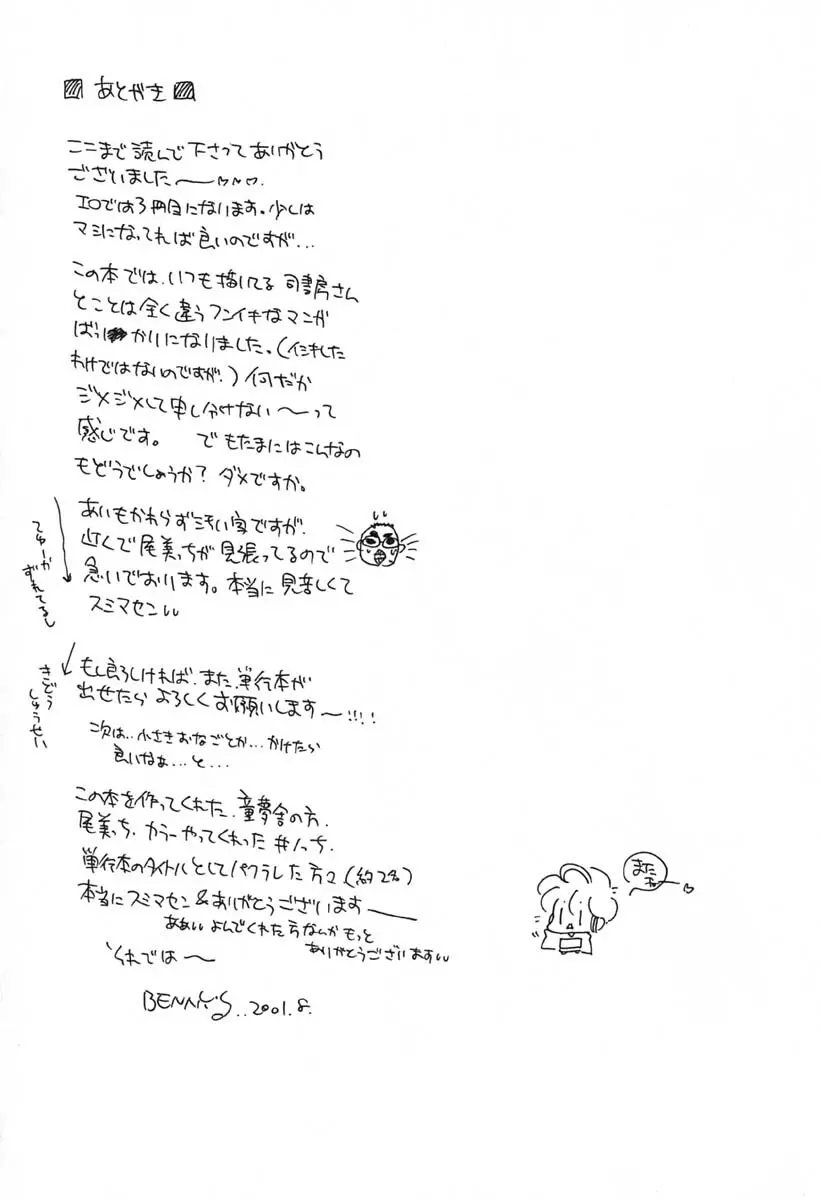 あとがき
ここまで読んで下さってありがとう
ございました〜♡♡♡.
エロでは3冊目になります。少しは
マシになってれば良いのですが...
この本では、いつも描いてる司書房さん
とことは全く違うフンイキなマンガ
ばっかりになりました。(イシキした
わけではないのですが。)何だか
ジメジメして申し分けない〜って
感じです。 でもたまにはこんなの
もどうでしょうか? ダメですか。
あいもかわらず汚い字ですが、
近くで尾美っちが見張ってるので
急いでおります。本当に見苦しくて
スミマセン
てゆーか
ずれてるし
もし良ろしければ、また、単行本が
出せたらよろしくお願いします〜!!!!
きどう
しゅうせい
次は..小さきおなごとか...かけたら
良いなぁ...と...
この本を作ってくれた、童夢舎の方、
尾美っち、カラーやってくれた
単行本のタイトルとしてパクラレした方々(約2名)
本当にスミマセン&ありがとうございます——
ああぃよんでくれた方なんかもっと
ありがとうございます
それでは〜
BENNY'S..2001.8.
また
ね—♡